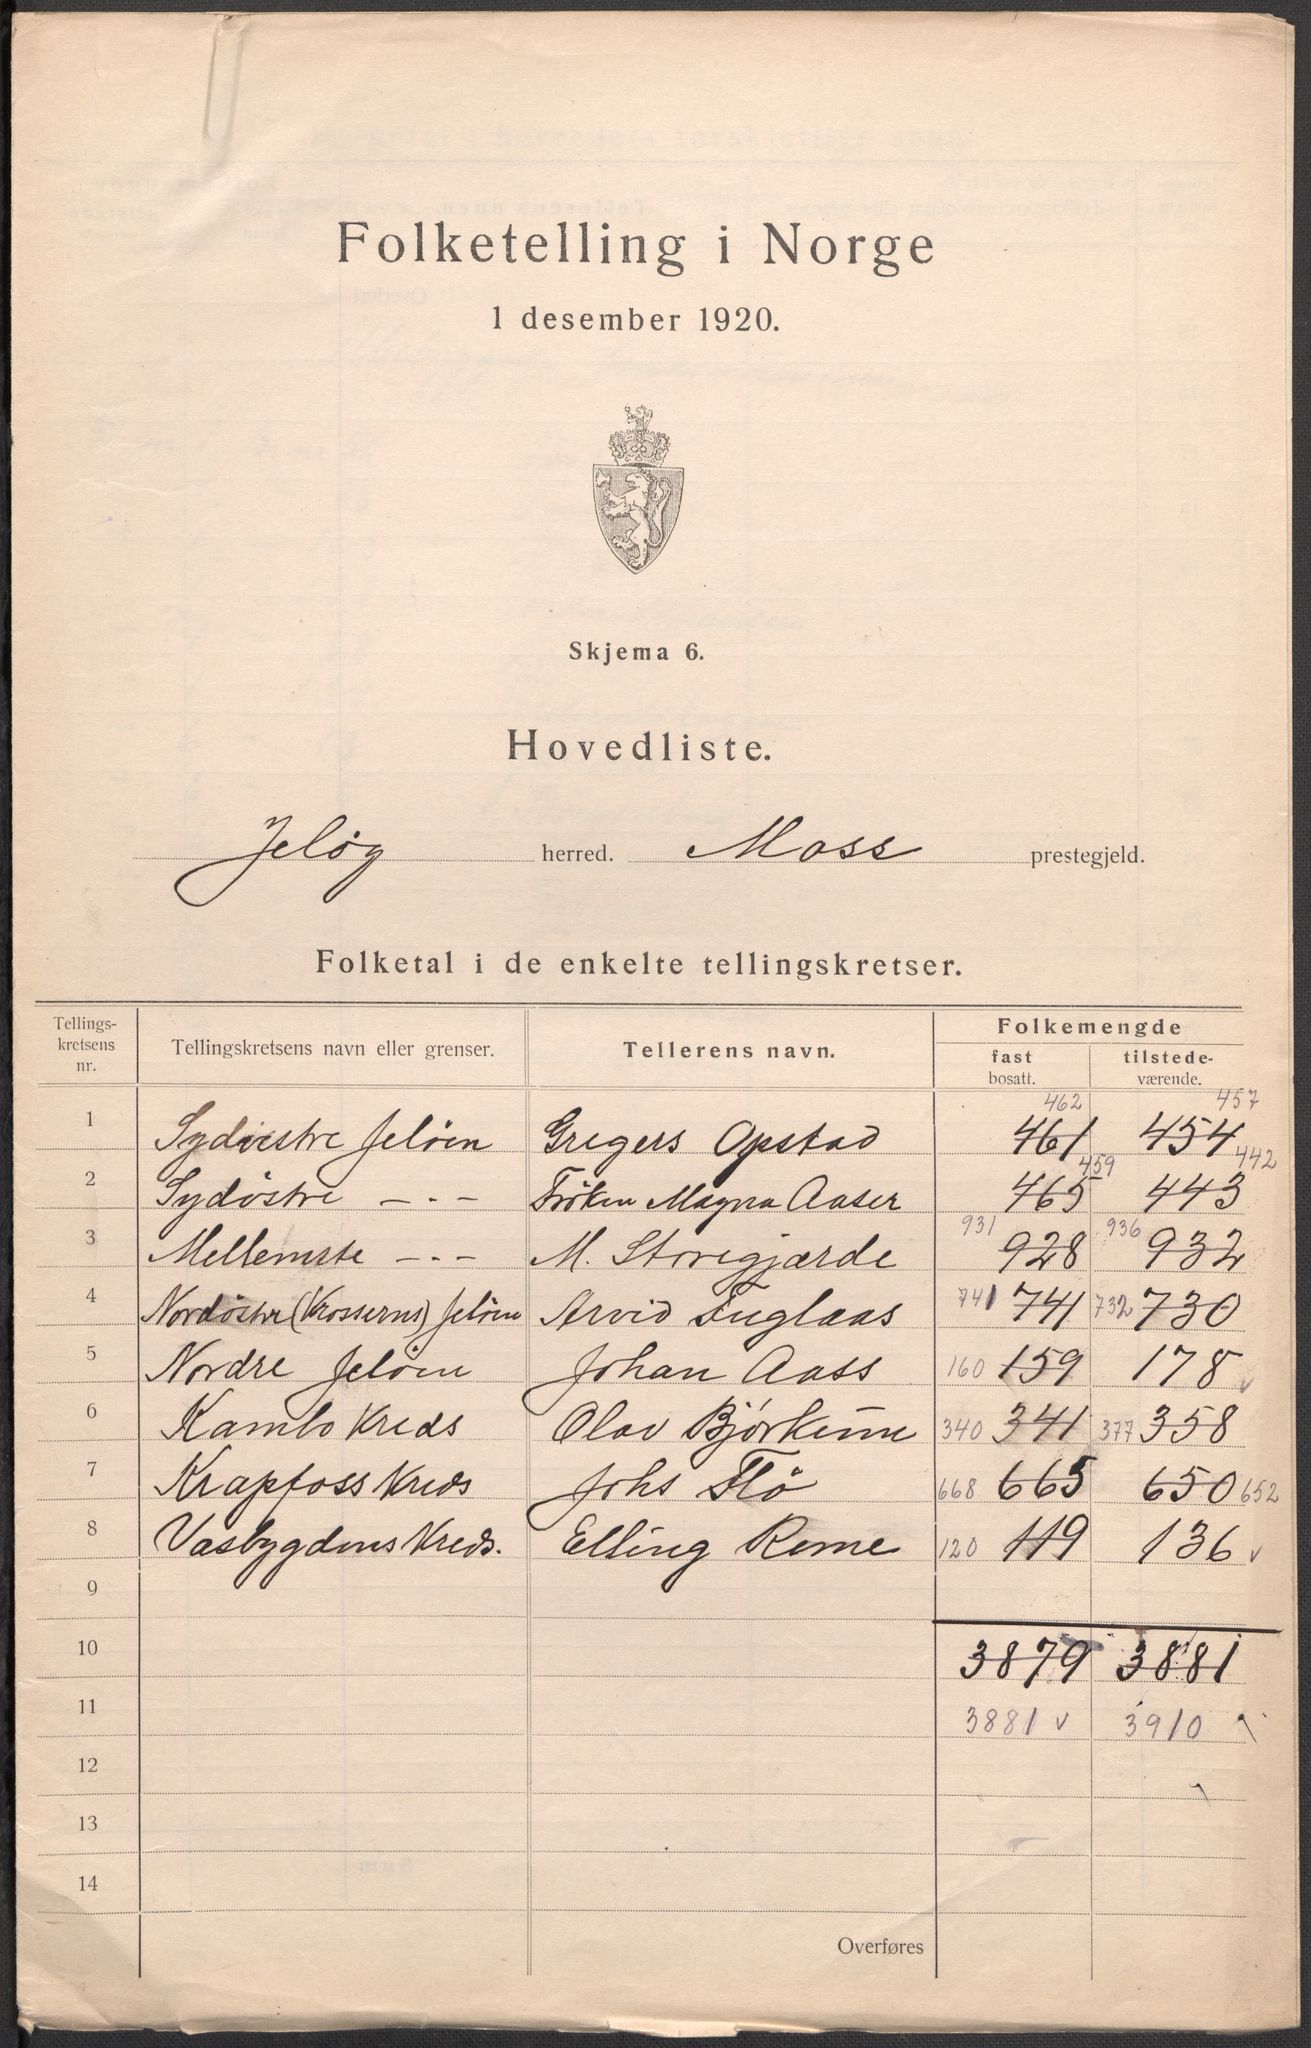 Folketelling i Norge
1 desember 1920.
Skjema 6.
Hovedliste.
Jeløy herred. Moss prestegjeld.
Folketal i de enkelte tellingskretser.
Tellings-kretsens nr. Tellingskretsens navn eller grenser. Tellerens navn. Folkemengde fast bosatt. tilstede-værende.
462 457
1 Sydvestre Jeløen Gregers Opstad 461 454
459 442
2 Sydöstre -.- Frøken Magna Aaser 465 443
3 Mellemste -.- M. Storegjærde 931 928 936 932
4 Nordöstre (Krosserns) Jelöen Arvid Fuglaas 741 741 732 730
5 Nordre Jelöen Johan Aass 160 159 178 v
6 Kambo Kreds Olav 340 341 377 358
7 Krapfoss Kreds Johs Flö 668 665 650 652
8 Vasbygdens Kreds. Elling Reme 120 119 136 v
9
10 3879 3881
11 3881 v 3910
12
13
14
Overføres